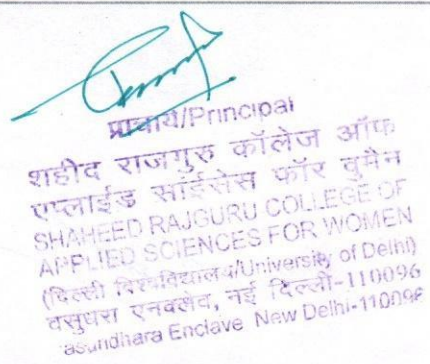 प्राचार्य/Principal
शहीद राजगुरु कॉलेज ऑफ
एप्लाईड साईंसेस फॉर वुमैन
SHAHEED RAJGURU COLLEGE OF
APPLIED SCIENCES FOR WOMEN
(दिल्ली विश्वविद्यालय/University of Delhi)
वसुंधरा एनक्लेव, नई दिल्ली-110096
asundhara Enclave New Delhi-110096